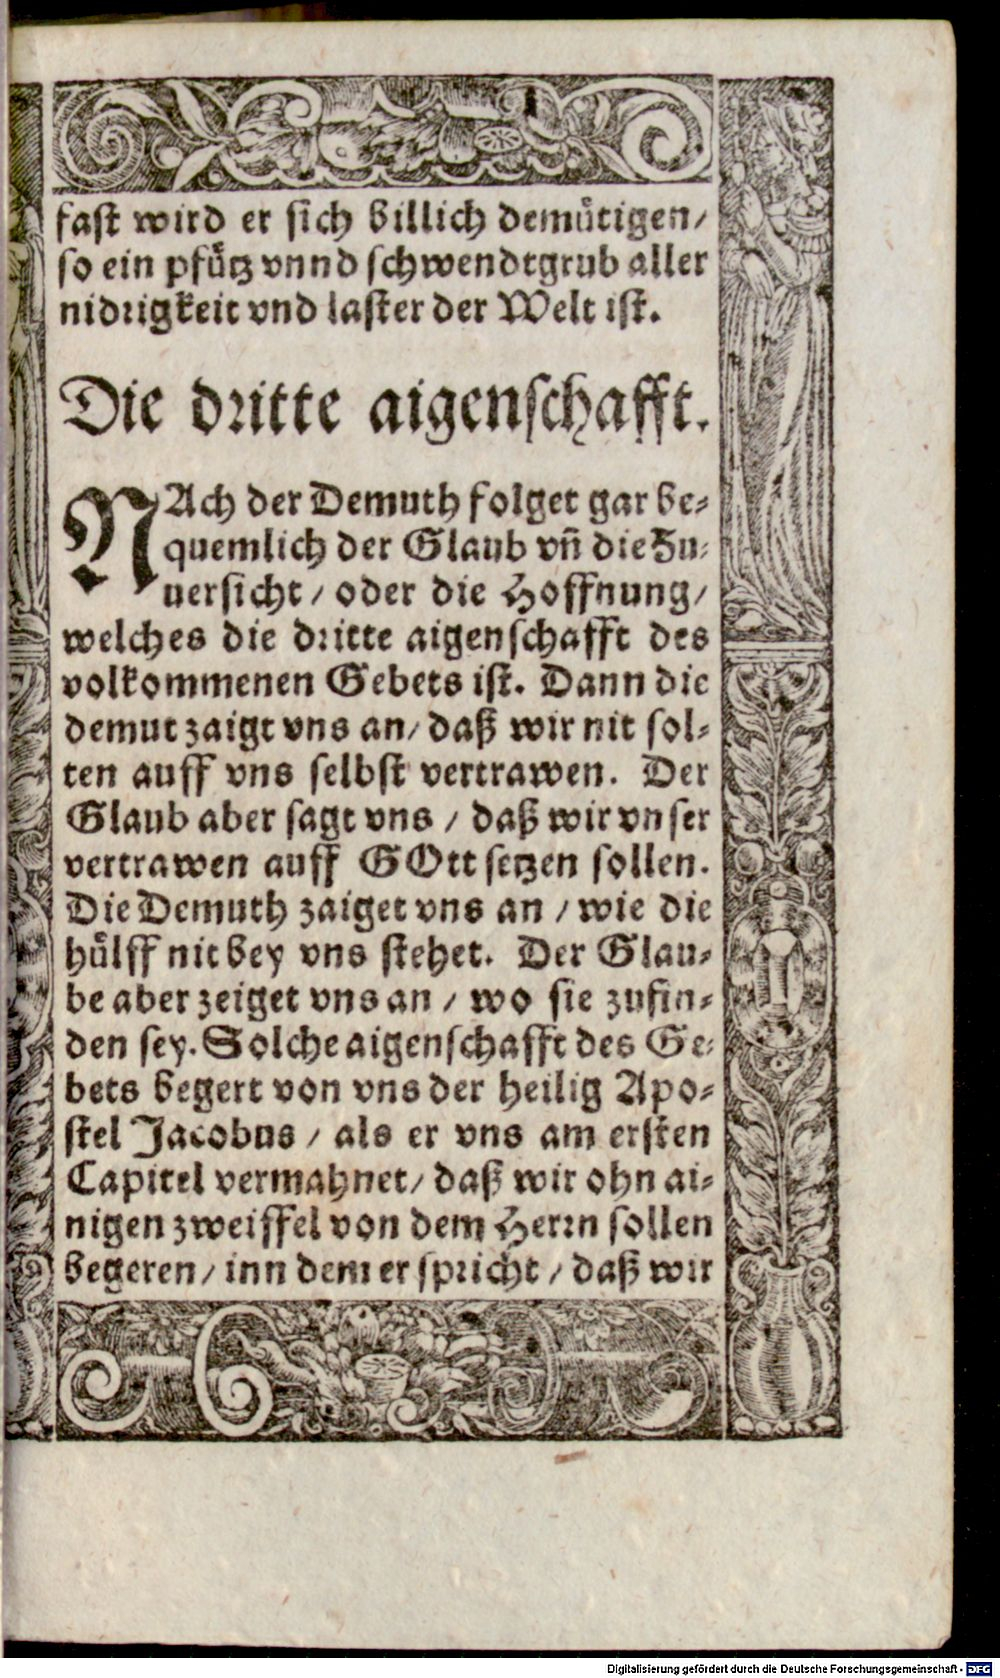 fast wird er sich billich demuͤtigen/
so ein pfuͤtz vnnd schwendtgrub aller
nidrigkeit vnd laster der Welt ist.
Die dritte aigenschafft.
NAch der Demuth folget gar be-
quemlich der Glaub vñ die Zu-
uersicht / oder die Hoffnung/
welches die dritte aigenschafft des
volkommenen Gebets ist. Dann die
demut zaigt vns an/ daß wir nit sol-
ten auff vns selbst vertrawen. Der
Glaub aber sagt vns / daß wir vnser
vertrawen auff GOtt setzen sollen.
Die Demuth zaiget vns an / wie die
huͤlff nit bey vns stehet. Der Glau-
be aber zeiget vns an / wo sie zufin-
den sey. Solche aigenschafft des Ge-
bets begert von vns der heilig Apo-
stel Jacobus / als er vns am ersten
Capitel vermahnet/ daß wir ohn ai-
nigen zweiffel von dem Herrn sollen
begeren/ inn dem er spricht / daß wir
Digitalisierung gefördert durch die Deutsche Forschungsgemeinschaft - DFG